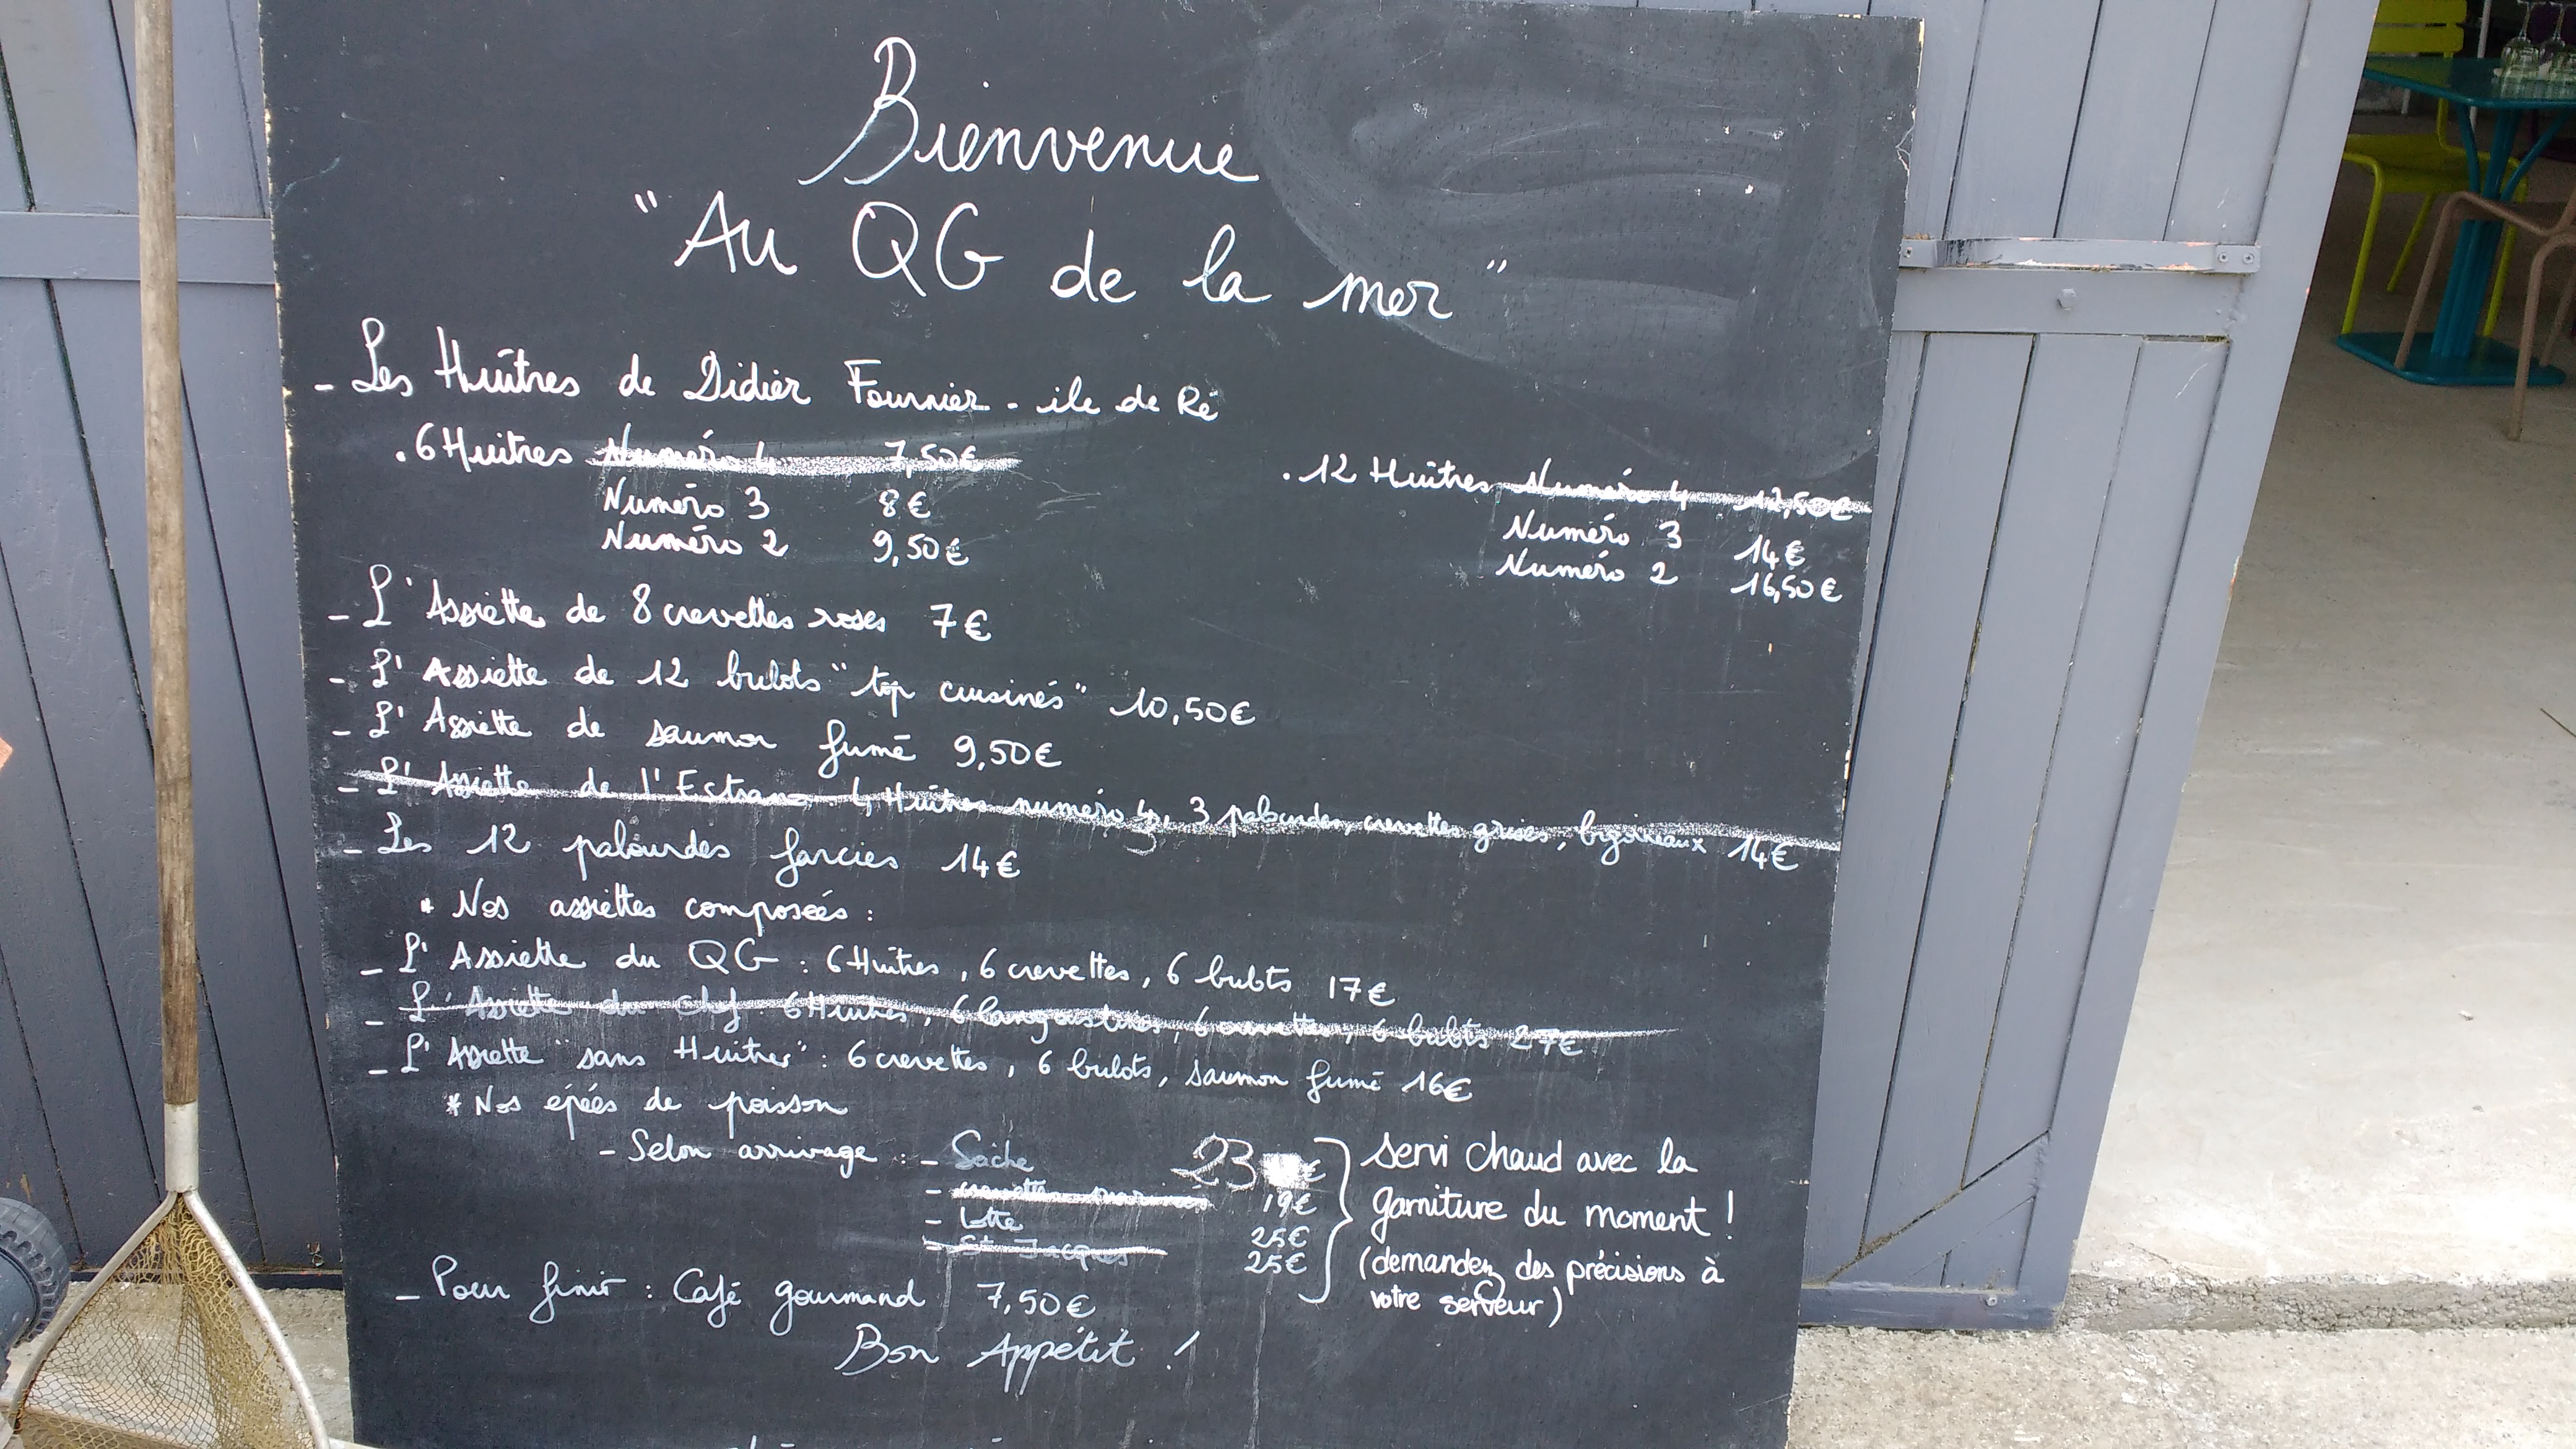 Bienvenue
"Au QG de la mer"
- Les Huîtres de Didier Fournier - ile de Ré
. 6 Huitres Numéro 4 7,50€
Numéro 3 8€
Numéro 2 9,50€
. 12 Huîtres Numéro 4 12,50€
Numéro 3 14€
Numéro 2 16,50€
- L'Assiette de 8 crevettes roses 7€
- L'Assiette de 12 bulots "top cuisinés" 10,50€
- L'Assiette de saumon fumé 9,50€
- L'Assiette de l'Estran 4 Huîtres numéro 4, 3 palourdes, crevettes grises, bigorneaux 14€
- Les 12 palourdes farcies 14€
* Nos assiettes composées :
- L'Assiette du QG : 6 Huîtres, 6 crevettes, 6 bulots 17€
- L'Assiette du Chef 6 Huîtres, 6 langoustines, 6 crevettes, 6 bulots 27€
- L'Assiette "sans Huîtres" : 6 crevettes, 6 bulots, saumon fumé 16€
* Nos épées de poisson
- Selon arrivage : - Seiche 23 €
- crevettes 19€
- Lotte 25€
- St Jacques 25€
servi chaud avec la
garniture du moment !
(demandez des précisions à
votre serveur)
- Pour finir : Café gourmand 7,50€
Bon Appétit !